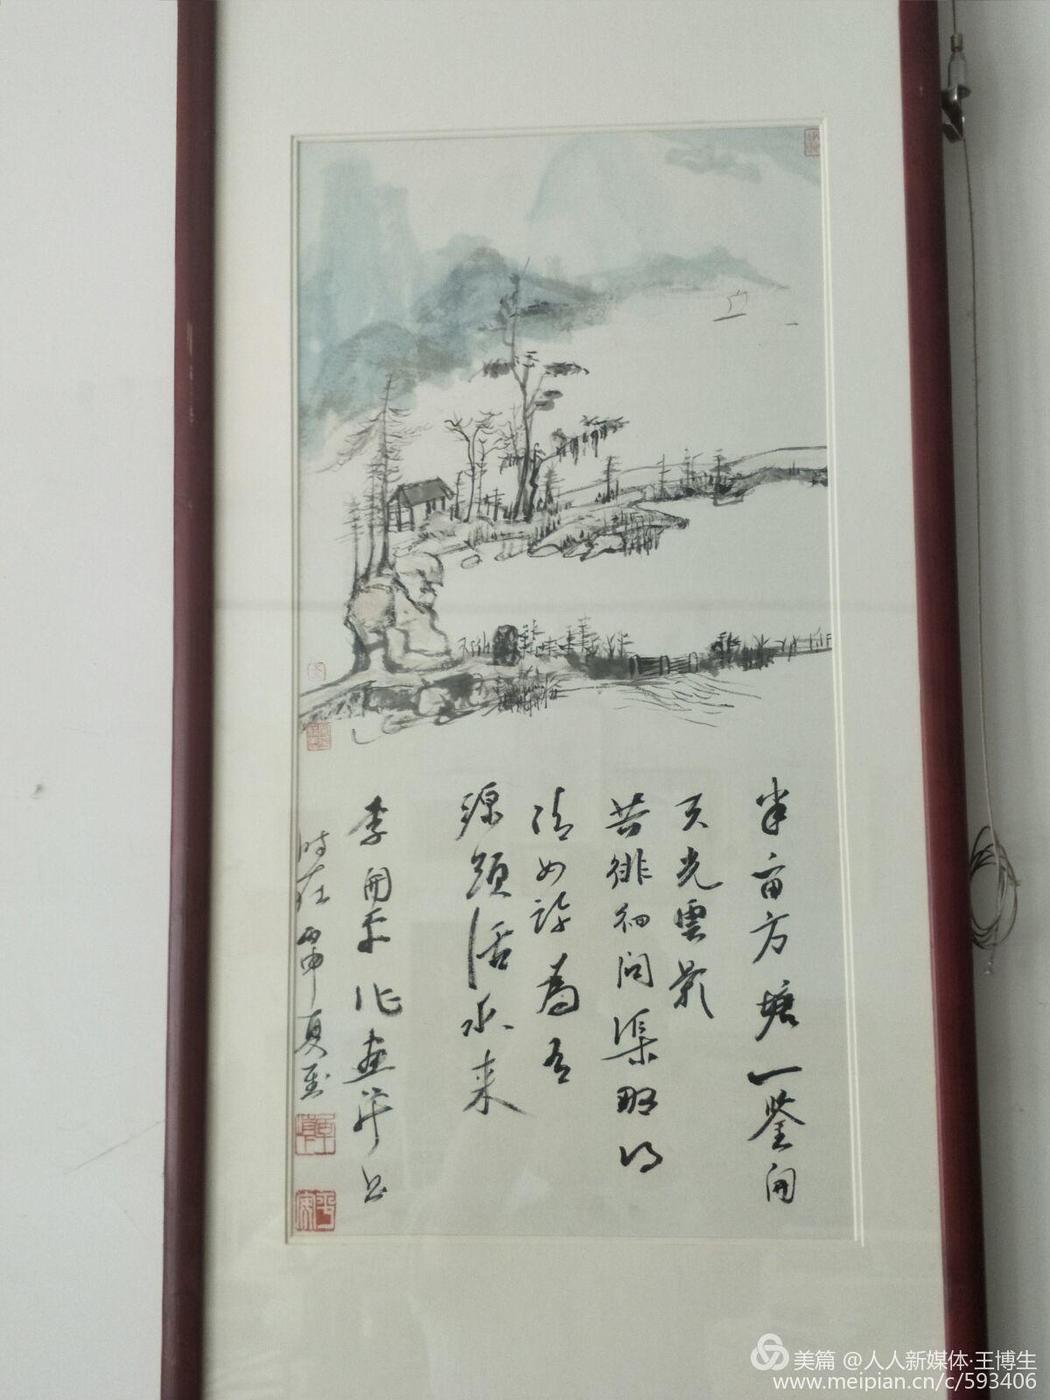 半亩方塘一鉴開
天光雲影
共徘徊问渠那得
清如許為有
源頭活水来
李開平作画并书
时在丙申夏至
美篇 @人人新媒体·王博生
www.meipian.cn/c/593406